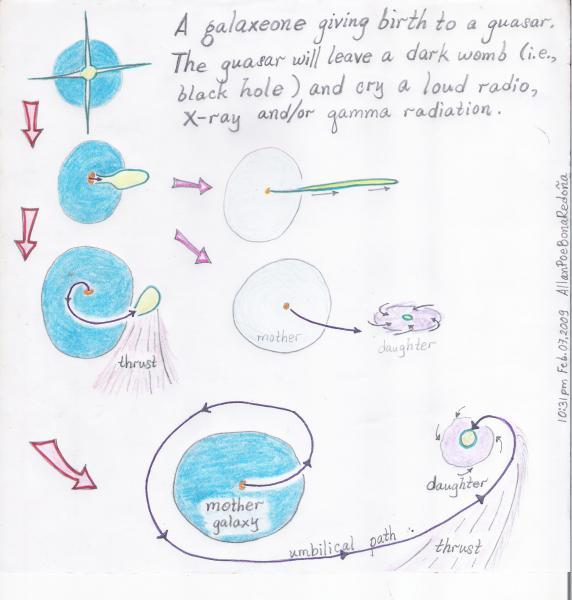 A galaxeone giving birth to a quasar.
The quasar will leave a dark womb (i.e.,
black hole) and cry a loud radio,
X-ray and/or gamma radiation.
thrust
mother
daughter
mother
galaxy
umbilical path
daughter
thrust
10:31pm Feb.07,2009 AllanPoeBonaRedoña